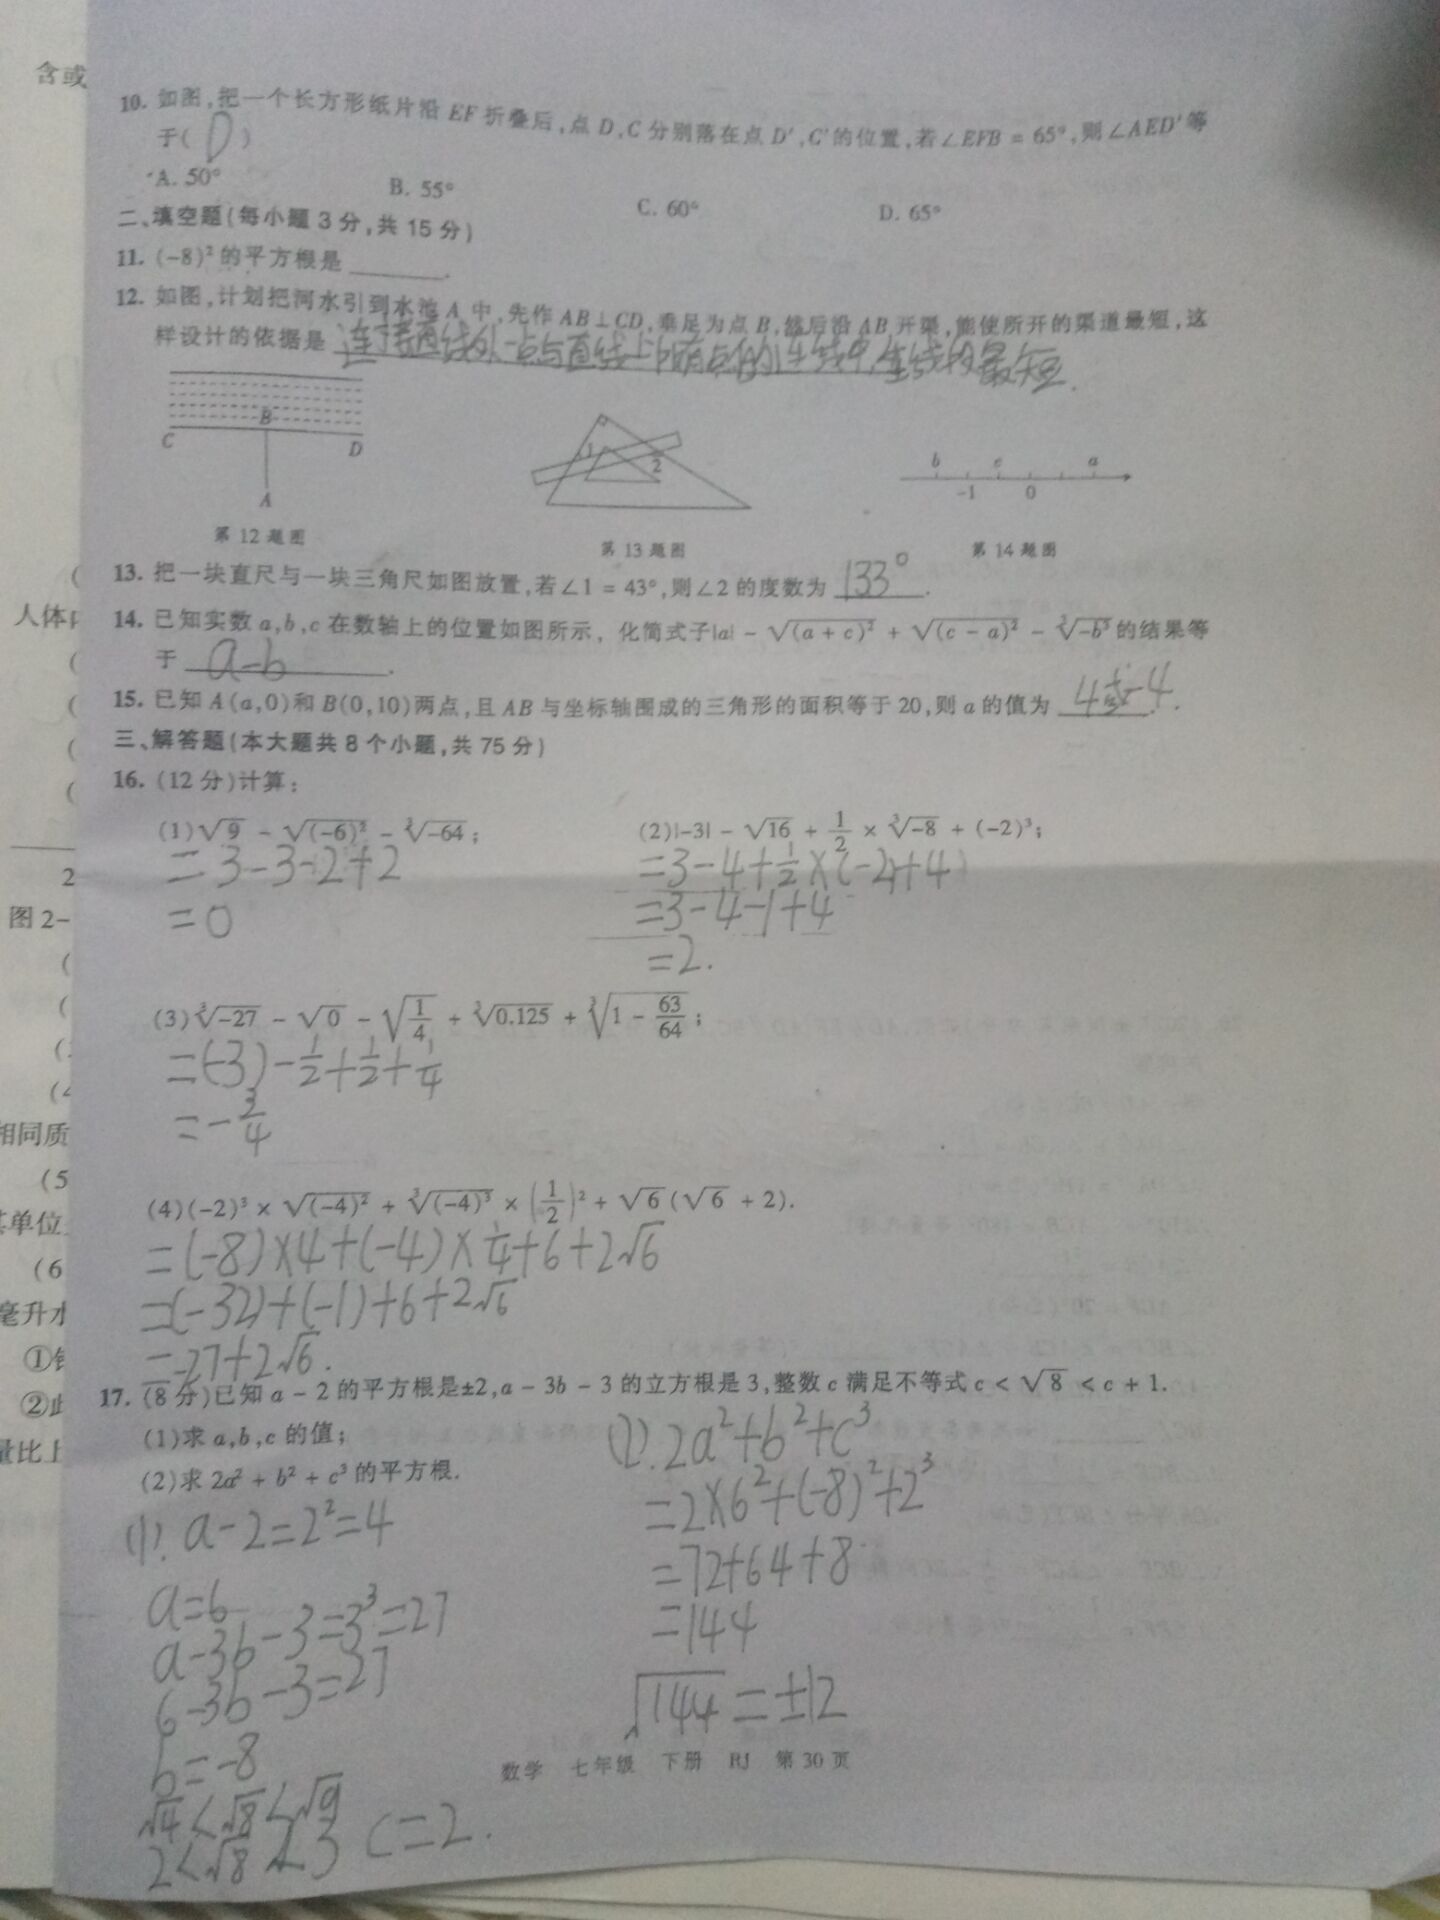 含或
10. 如图,把一个长方形纸片沿 EF 折叠后,点 D,C 分别落在点 D′,C′的位置,若∠EFB = 65°,则∠AED′等
于( D )
A. 50° B. 55° C. 60° D. 65°
二、填空题(每小题 3 分,共 15 分)
11. (-8)² 的平方根是 ______.
12. 如图,计划把河水引到水池 A 中,先作 AB⊥CD,垂足为点 B,然后沿 AB 开渠,能使所开的渠道最短,这
样设计的依据是 连接直线外一点与直线上所有点的连线中,垂线段最短.
B
C D
A
1
2
b c a
-1 0
第 12 题图 第 13 题图 第 14 题图
13. 把一块直尺与一块三角尺如图放置,若∠1 = 43°,则∠2 的度数为 133°.
人体内
14. 已知实数 a,b,c 在数轴上的位置如图所示, 化简式子|a| - √(a + c)² + √(c - a)² - ∛-b³ 的结果等
于 a-b.
15. 已知 A(a,0)和 B(0,10)两点,且 AB 与坐标轴围成的三角形的面积等于 20,则 a 的值为 4或-4.
三、解答题(本大题共 8 个小题,共 75 分)
16. (12 分)计算:
(1)√9 - √(-6)² - ∛-64; (2)|-3| - √16 + 1/2 × ∛-8 + (-2)³;
= 3-3-2+2
= 0
=3-4+1/2×(-2)+4
=3-4-1+4
=2.
2
图 2-
(3)∛-27 - √0 - √1/4 + ∛0.125 + ∛1 - 63/64;
=(-3)-1/2+1/2+1/4
=-3/4
相同质
(5
单位
(6
毫升水
(4)(-2)³ × √(-4)² + ∛(-4)³ × (1/2)² + √6(√6 + 2).
=(-8)×4+(-4)×1/4+6+2√6
=(-32)+(-1)+6+2√6
=-27+2√6.
①
②此
量比上
17. (8 分)已知 a - 2 的平方根是±2,a - 3b - 3 的立方根是 3,整数 c 满足不等式 c < √8 < c + 1.
(1)求 a,b,c 的值;
(2)求 2a² + b² + c³ 的平方根.
(1). a-2=2²=4
a=6
a-3b-3=3³=27
6-3b-3=27
b=-8
√4<√8<√9
2<√8<3 c=2.
(2). 2a²+b²+c³
=2×6²+(-8)²+2³
=72+64+8
=144
√144=±12
数学 七年级 下册 RJ 第 30 页